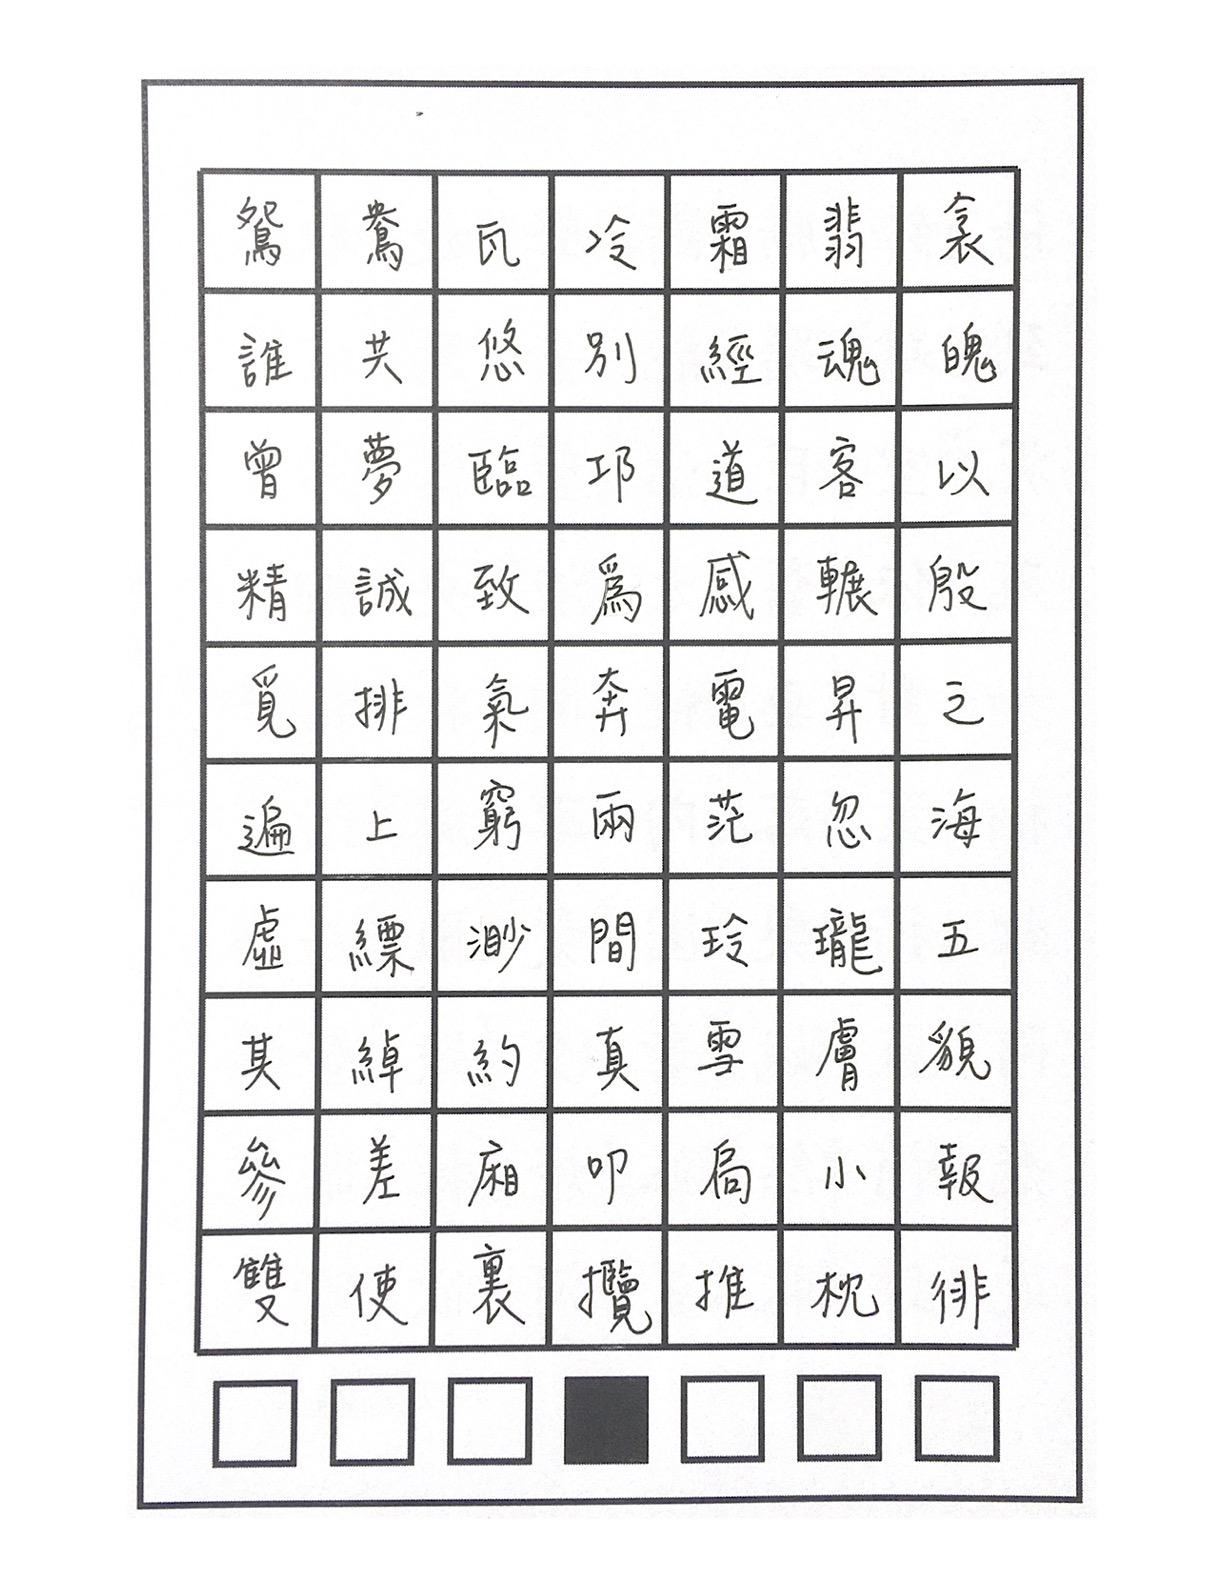 鴛鴦瓦冷霜翡衾
誰共悠別經魂魄
曾夢臨邛道客以
精誠致為感輾殷
覓排氣奔電昇之
遍上窮兩茫忽海
虛縹渺間玲瓏五
其綽約真雪膚貌
參差廂叩扃小報
雙使裏攬推枕徘